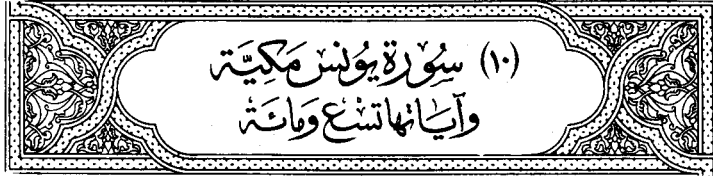 (١٠) سُورَة يُونسَ مَكيَّة
وَآيَاتها تسْع وَمائَة